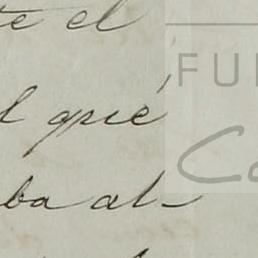 te el
l qué
ba al-
FU
C